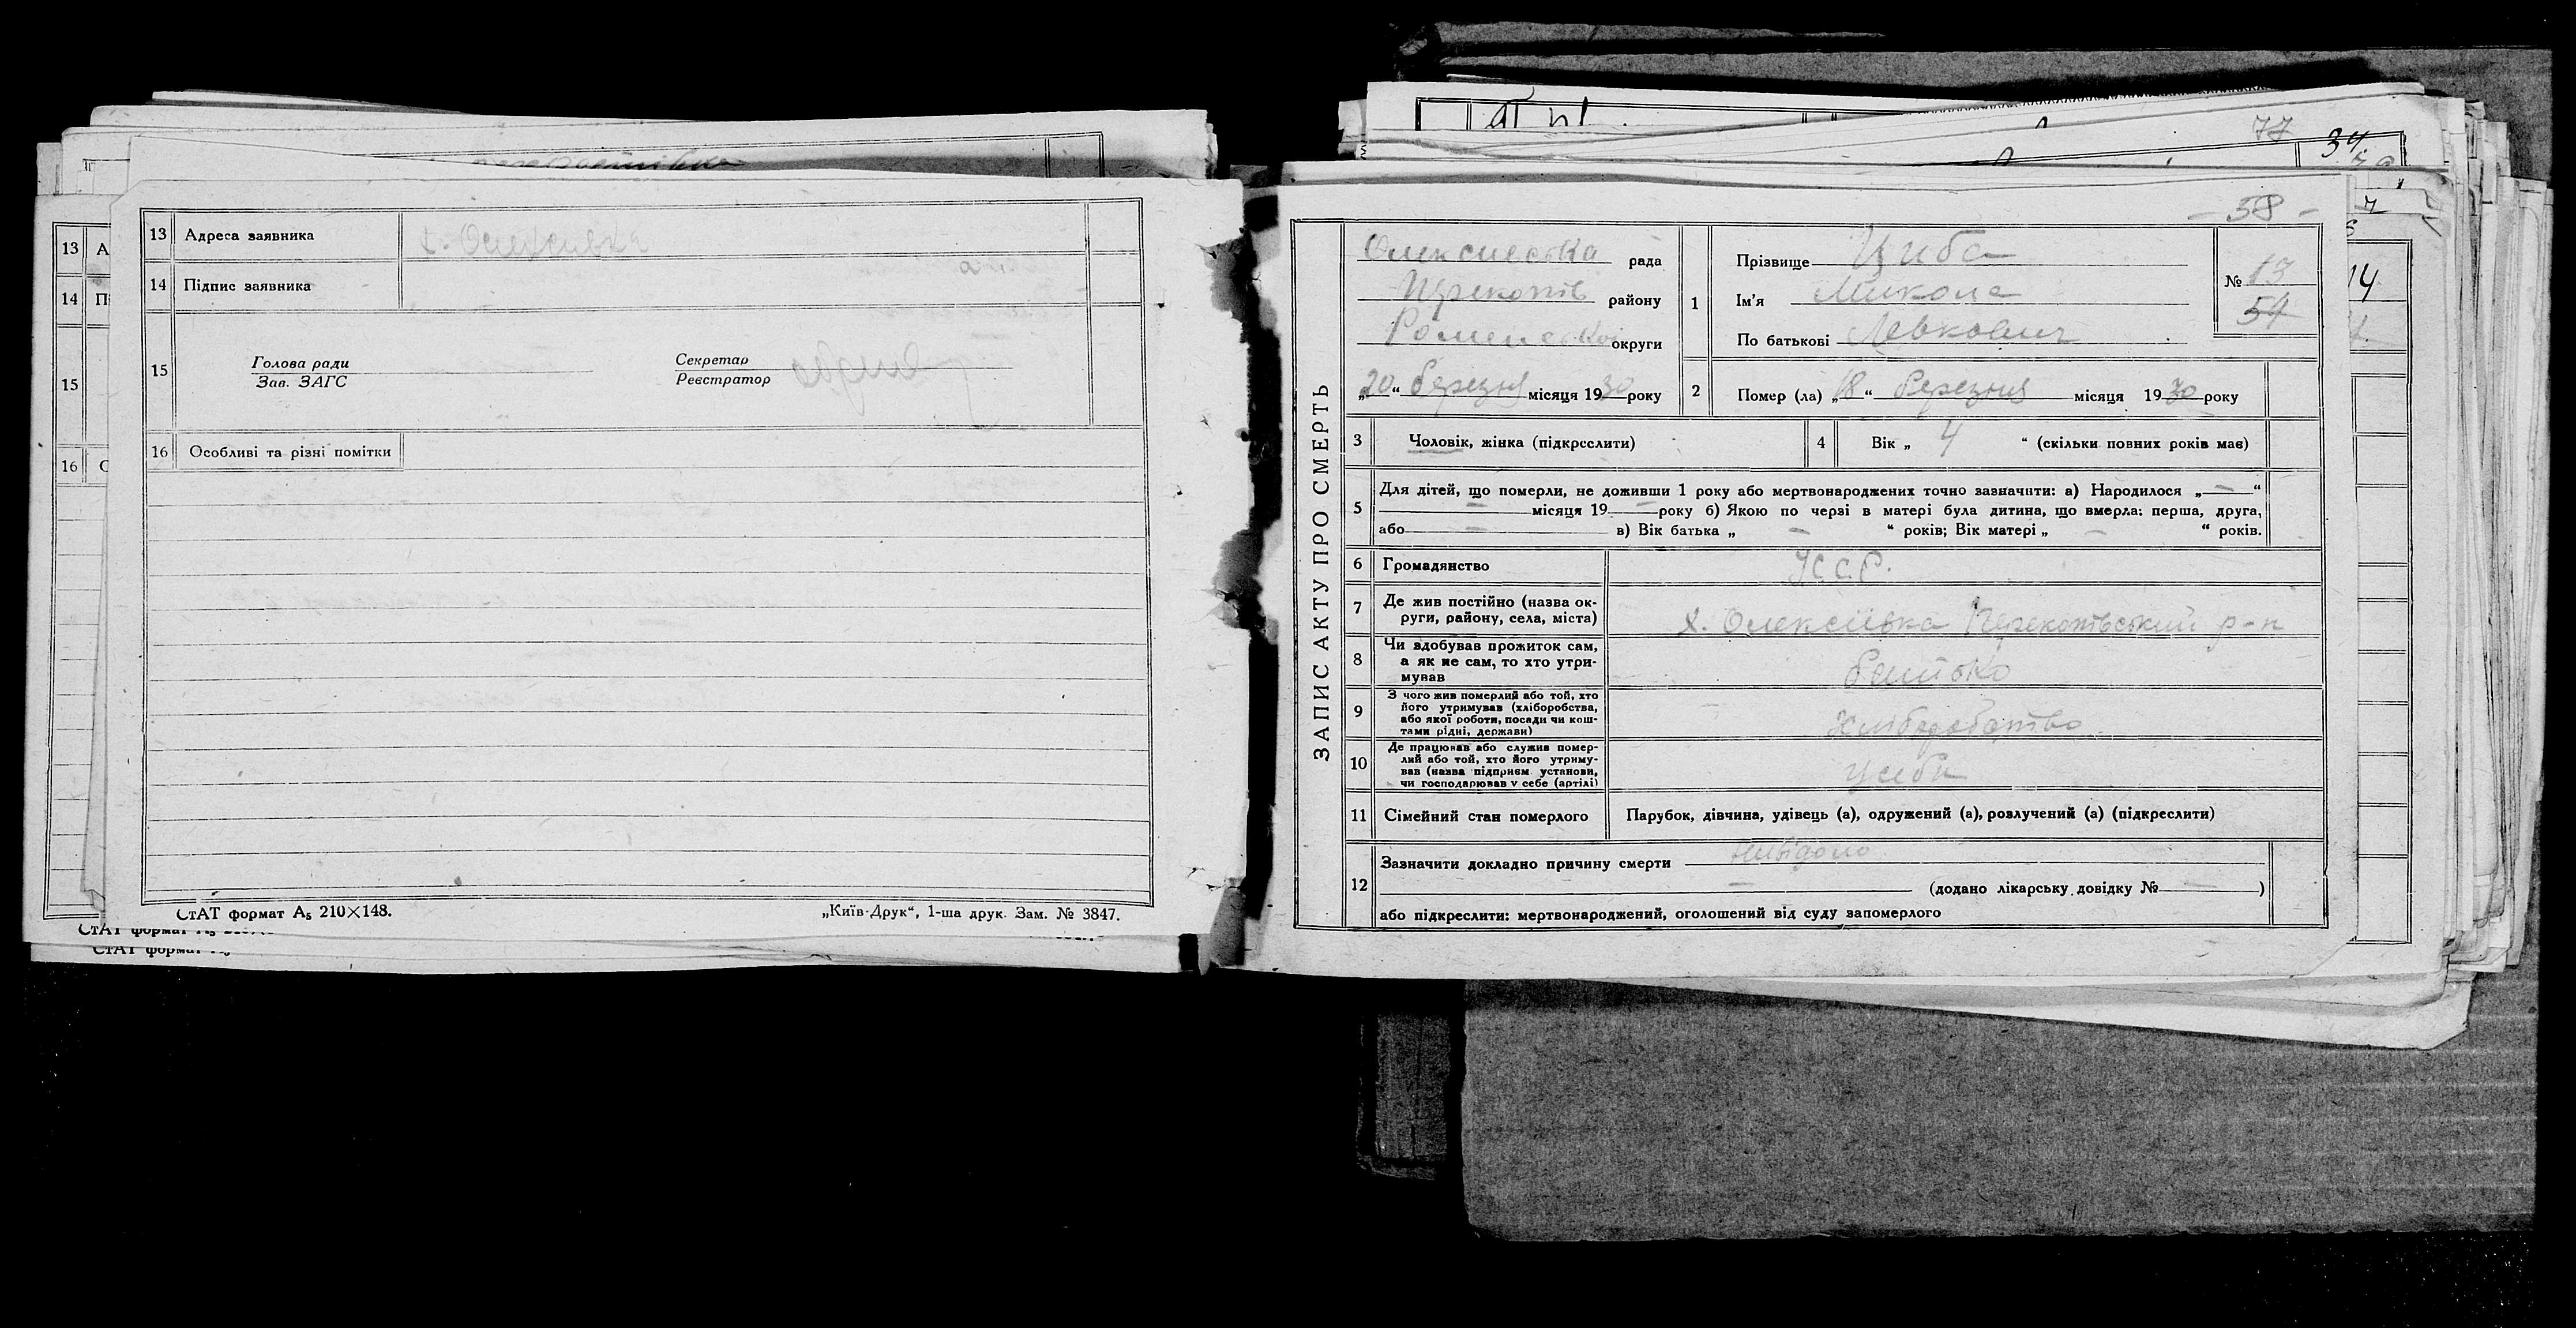 13 Адреса заявника х. Олексіївка
14 Підпис заявника
15 Голова ради
Зав. ЗАГС
Секретар
Реєстратор
16 Особливі та різні помітки
СтАТ формат А5 210×148.
„Київ-Друк“, 1-ша друк. Зам. № 3847.
13 А
14 П
15
16 С
СтАТ формат
СтАТ формат
77
34
14
- 58 -
ЗАПИС АКТУ ПРО СМЕРТЬ
Олексиевська рада
Перекопів району
Роменської округи
„20“ березня місяця 1930 року
1 Прізвище Циба
Ім’я Микола
По батькові Левкович
№ 13
54
2 Помер (ла) „18“ березня місяця 1930 року
3 Чоловік, жінка (підкреслити)
4 Вік „ 4 “ (скільки повних років має)
5 Для дітей, що померли, не доживши 1 року або мертвонароджених точно зазначити: а) Народилося „—“
— місяця 19— року б) Якою по черзі в матері була дитина, що вмерла: перша, друга,
або — в) Вік батька „ — “ років; Вік матері „ — “ років.
6 Громадянство УССР.
7 Де жив постійно (назва ок-
руги, району, села, міста) х. Олексіївка Перекопівський р-н
8 Чи здобував прожиток сам,
а як не сам, то хто утри-
мував батько
9 З чого жив померлий або той, хто
його утримував (хліборобства,
або якої роботи, посади чи кош-
тами рідні, держави) Хліборобство
10 Де працював або служив помер-
лий або той, хто його утриму-
вав (назва підприєм установи,
чи господарював у себе (артілі) У себе
11 Сімейний стан померлого Парубок, дівчина, удівець (а), одружений (а), розлучений (а) (підкреслити)
12 Зазначити докладно причину смерти невідомо
— (додано лікарську довідку № )
або підкреслити: мертвонароджений, оголошений від суду запомерлого